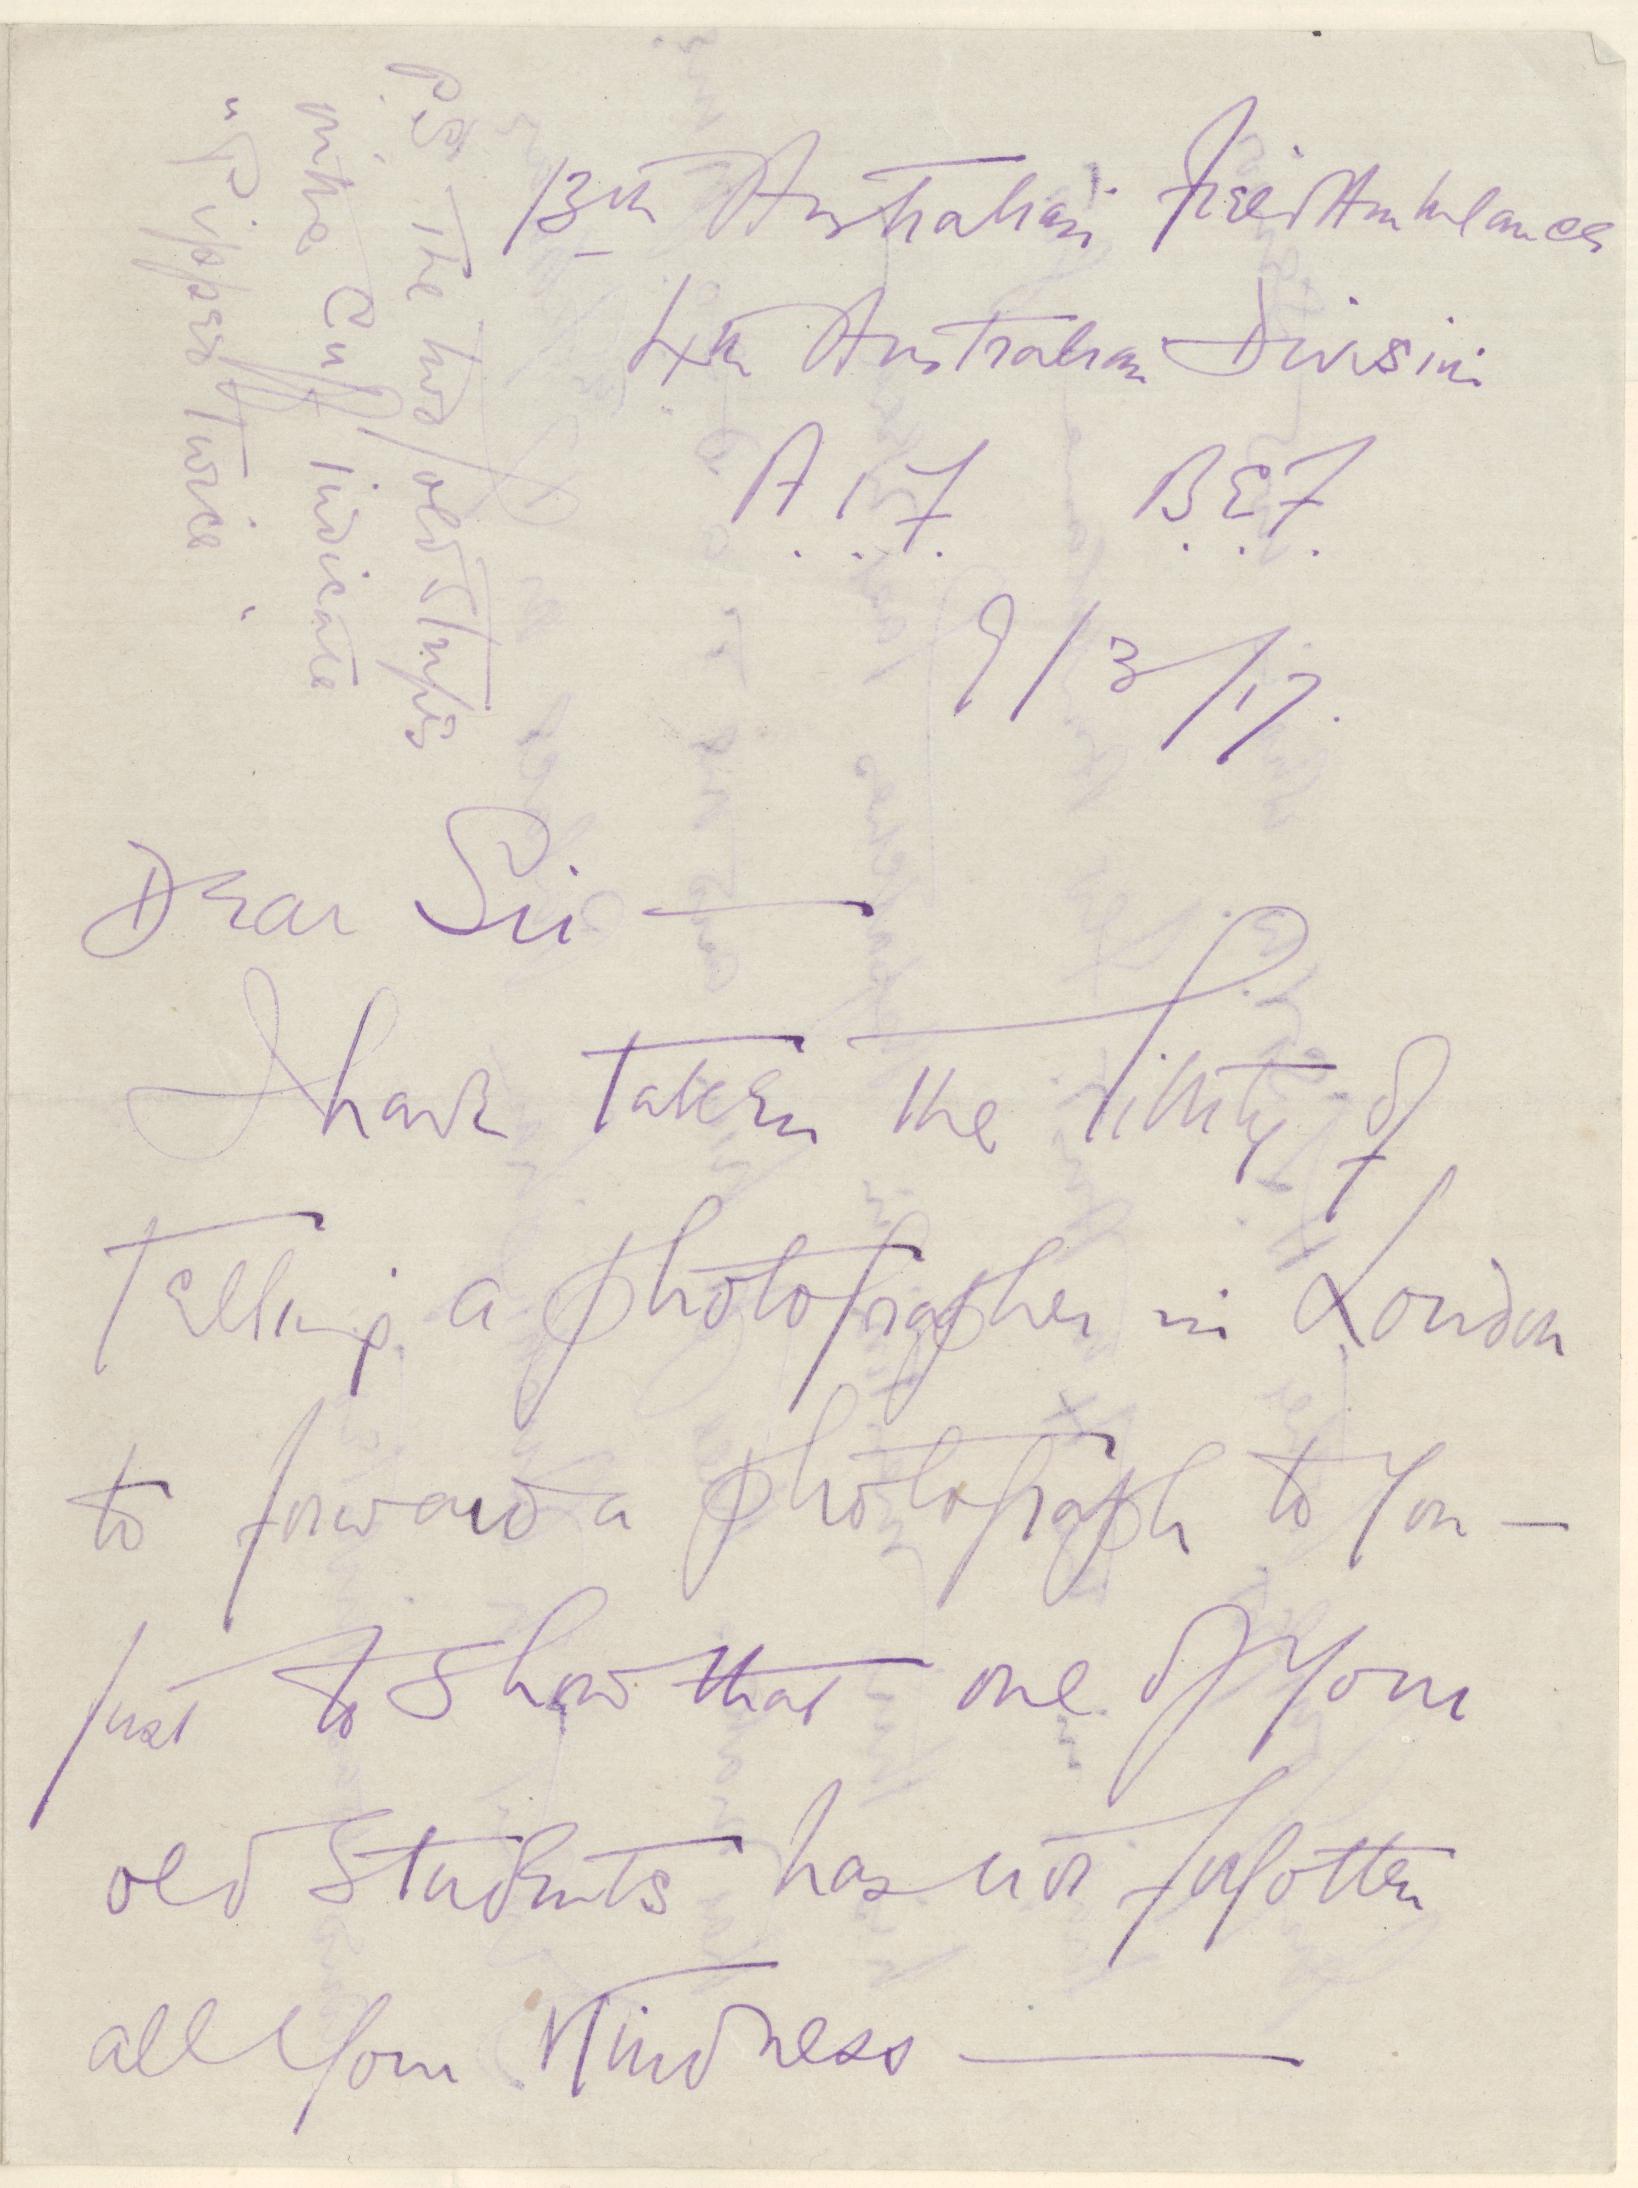 13th Australian Field Ambulance
4th Australian Division
A.I.F. B.E.F.
9/3/17.
Dear Sir —
I have taken the liberty of
telling a photographer in London
to forward a photograph to you —
just to show that one of your
old students has not forgotten
all your kindness —
P.S. The two gold stripes
on the cuff indicate
"Pipped twice"